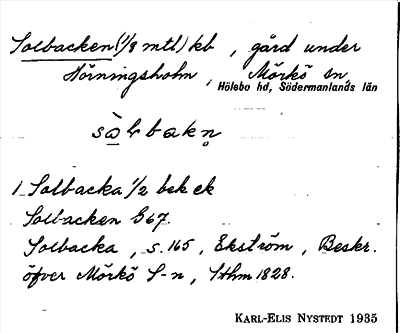 Solbacken (1/8 mtl) kb, gård under
Hörningsholm, Mörkö sn,
Hölebo hd, Södermanlands län
sὰlbakn̥
1 Solbacka 1/2 bek ek
Solbacken G67.
Solbacka, s. 165, Ekström, Beskr.
öfver Mörkö S-n, Sthm 1828.
KARL-ELIS NYSTEDT 1935